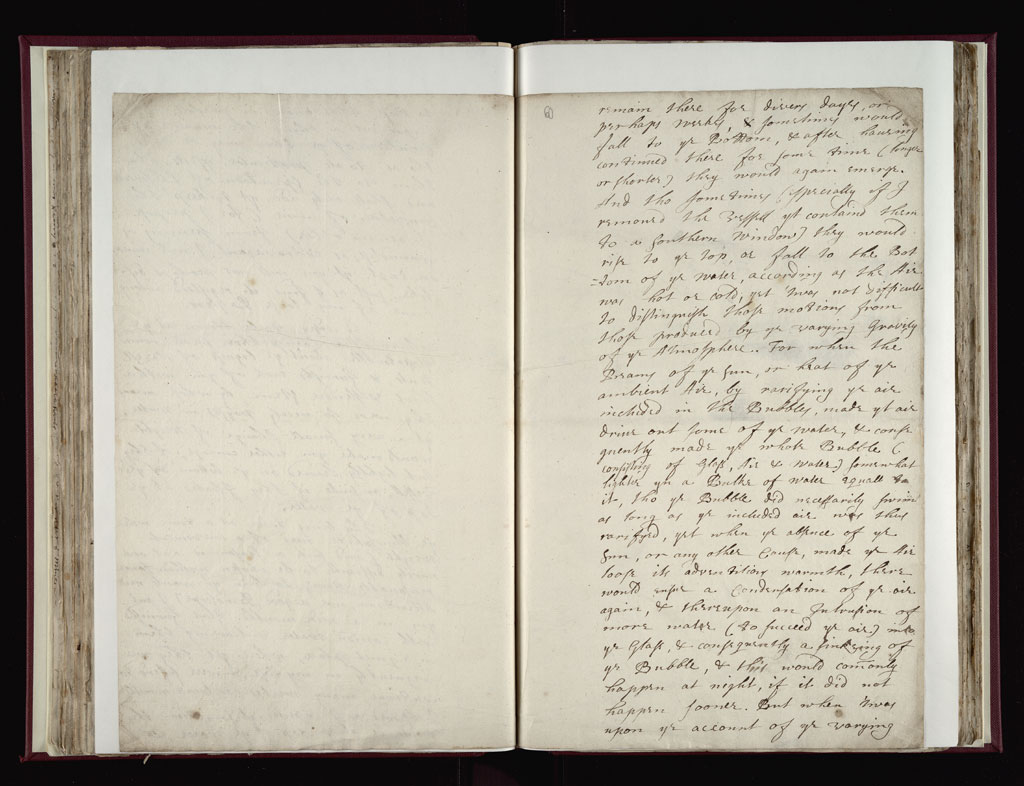 remain there for divers dayes, or
perhaps weeks, & sometimes would
fall to ye Bottom, & after having
continued there for some time (longer
or shorter) they would again emerge.
And tho sometimes (specially if I
remov'd the Vessell yt contain'd them
to a Southern Window) they would
rise to ye top, or fall to the Bot
=tom of ye water, according as the Air
was hot or cold, yet twas not difficult
to distinguish those motions from
those produced by ye varying Gravity
of ye Atmosphere. For when the
Beams of ye Sun, or heat of ye
ambient Air, by rarifying ye air
included in the Bubbles, made yt air
drive out some of ye water, & conse
quently made ye whole Bubble (
consisting of Glass, Air & water) somewhat
lighter yn a Bulke of water equall to
it, tho ye Bubble did necessarily swim
as long as ye included air was thus
rarifyd, yet when ye absence of ye
Sun, or any other Cause, made ye Air
loose its adventitious warmth, there
would ensue a Condensation of ye air
again, & thereupon an Intrusion of
more water (to succeed ye air) into
ye Glass, & consequently a sinking of
ye Bubble, & this would comonly
happen at night, if it did not
happen sooner. But when twas
upon ye account of ye varying